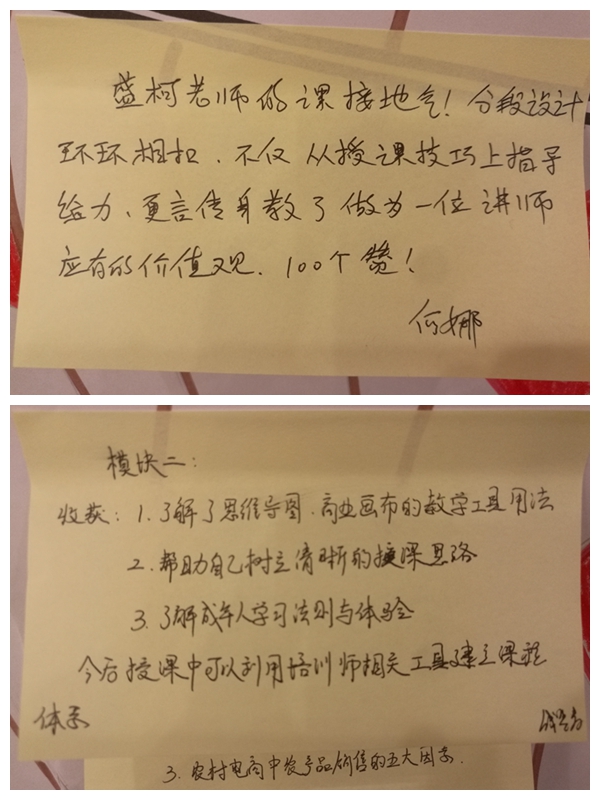 盛柯老师的课接地气！分段设计
环环相扣、不仅从授课技巧上指导
给力、更言传身教了做为一位讲师
应有的价值观、100个赞！
何娜
模块二：
收获：1.了解了思维导图、商业画布的教学工具用法
2.帮助自己树立清晰的授课思路
3.了解成年人学习法则与体验
今后授课中可以利用培训师相关工具建立课程
体系
3.农村电商中农产品销售的五大因素.